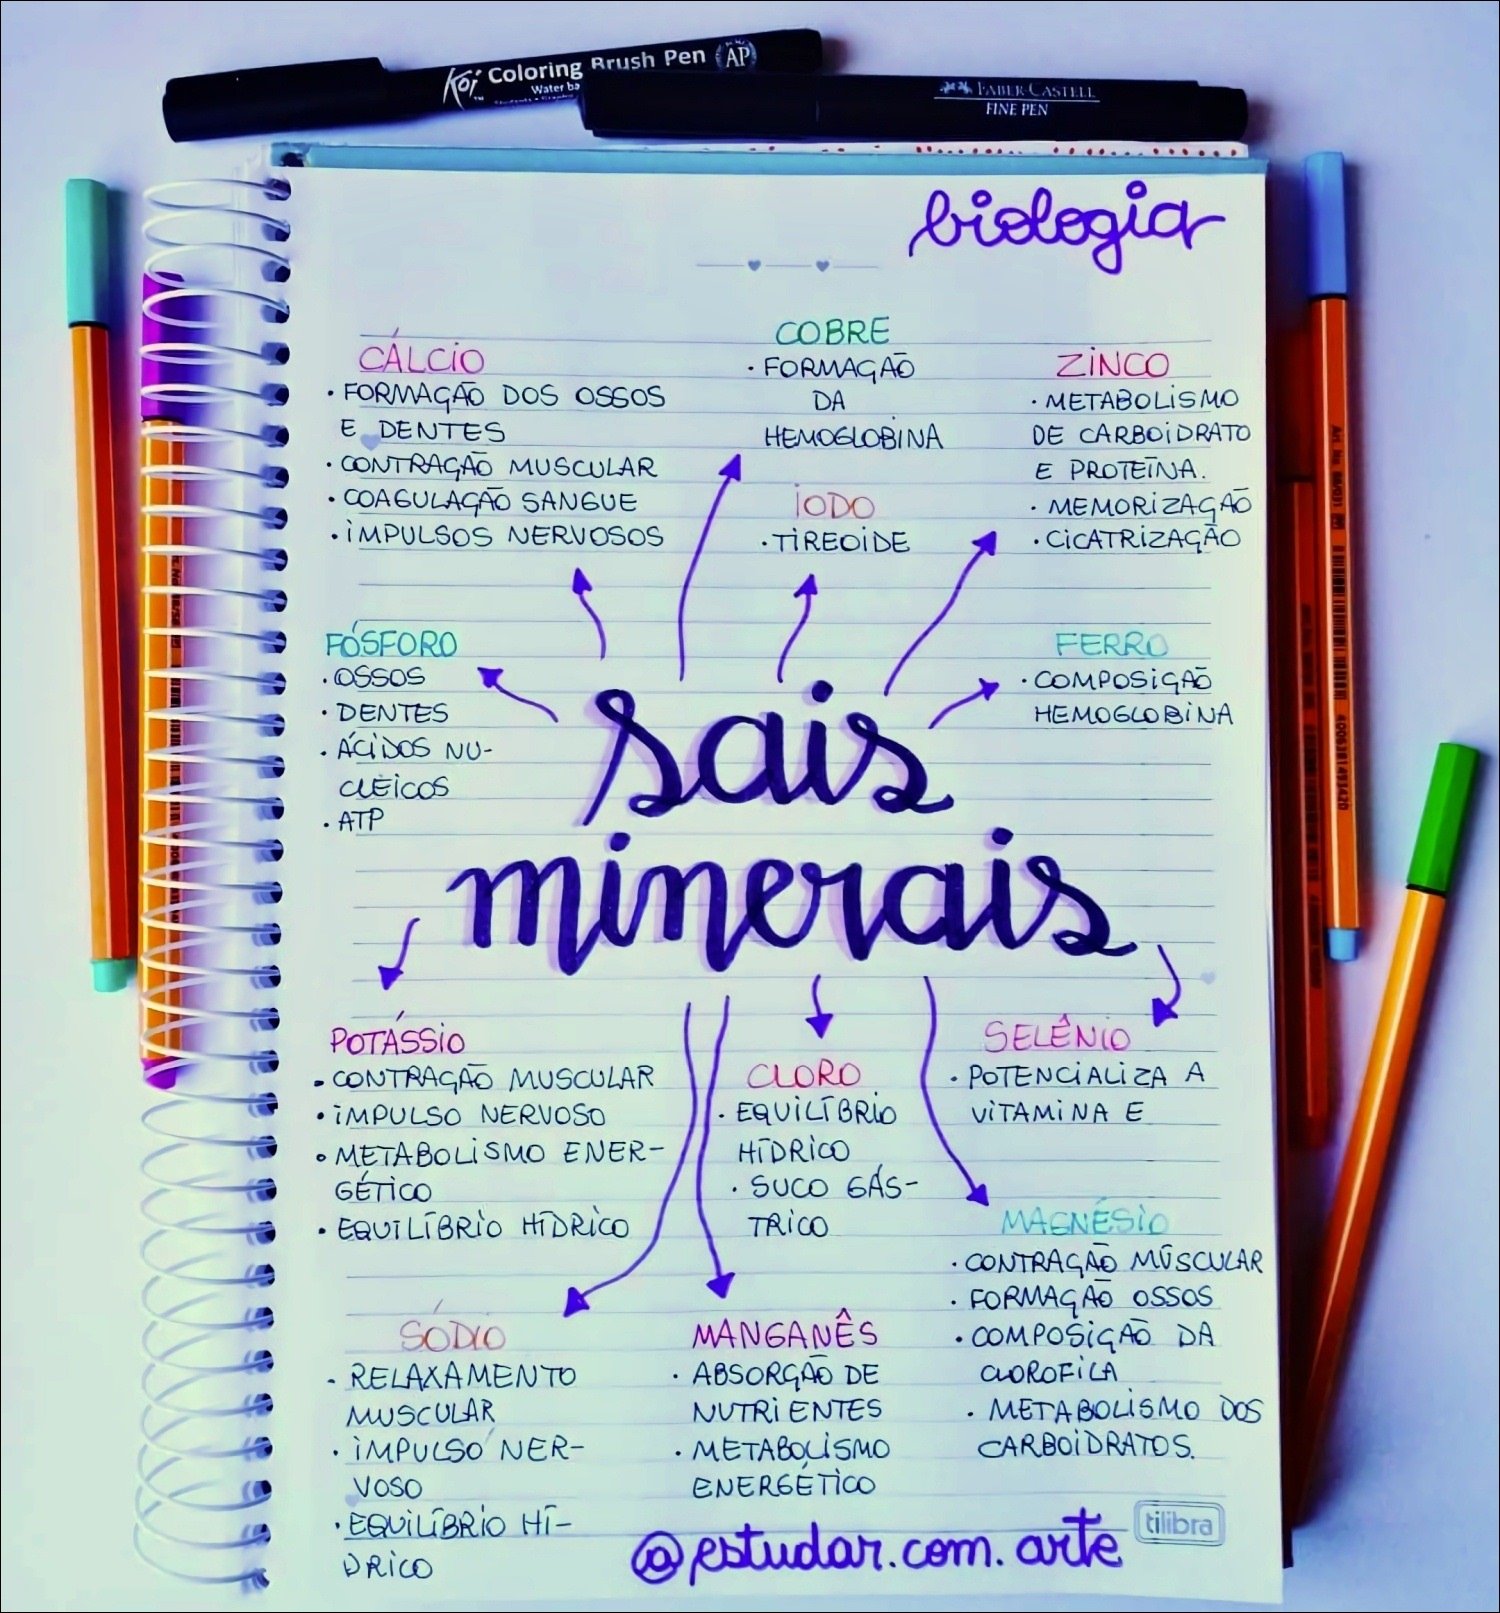 Koi Coloring Brush Pen AP
Water ba
FABER-CASTELL
FINE PEN
biologia
CÁLCIO
· FORMAÇÃO DOS OSSOS
E DENTES
· CONTRAÇÃO MUSCULAR
· COAGULAÇÃO SANGUE
· IMPULSOS NERVOSOS
COBRE
· FORMAÇÃO
DA
HEMOGLOBINA
IODO
· TIREOIDE
ZINCO
· METABOLISMO
DE CARBOIDRATO
E PROTEÍNA.
· MEMORIZAÇÃO
· CICATRIZAÇÃO
FÓSFORO
· OSSOS
· DENTES
· ÁCIDOS NU-
CLÉICOS
· ATP
FERRO
· COMPOSIÇÃO
HEMOGLOBINA
sais
minerais
POTÁSSIO
· CONTRAÇÃO MUSCULAR
· IMPULSO NERVOSO
· METABOLISMO ENER-
GÉTICO
· EQUILÍBRIO HÍDRICO
CLORO
· EQUILÍBRIO
HÍDRICO
· SUCO GÁS-
TRICO
SELÊNIO
· POTENCIALIZA A
VITAMINA E
MAGNÉSIO
· CONTRAÇÃO MÚSCULAR
· FORMAÇÃO OSSOS
· COMPOSIÇÃO DA
CLOROFILA
· METABOLISMO DOS
CARBOIDRATOS.
SÓDIO
- RELAXAMENTO
MUSCULAR
· IMPULSO NER-
VOSO
· EQUILÍBRIO HÍ-
DRICO
MANGANÊS
· ABSORÇÃO DE
NUTRIENTES
· METABOLISMO
ENERGÉTICO
@estudar.com.arte
tilibra